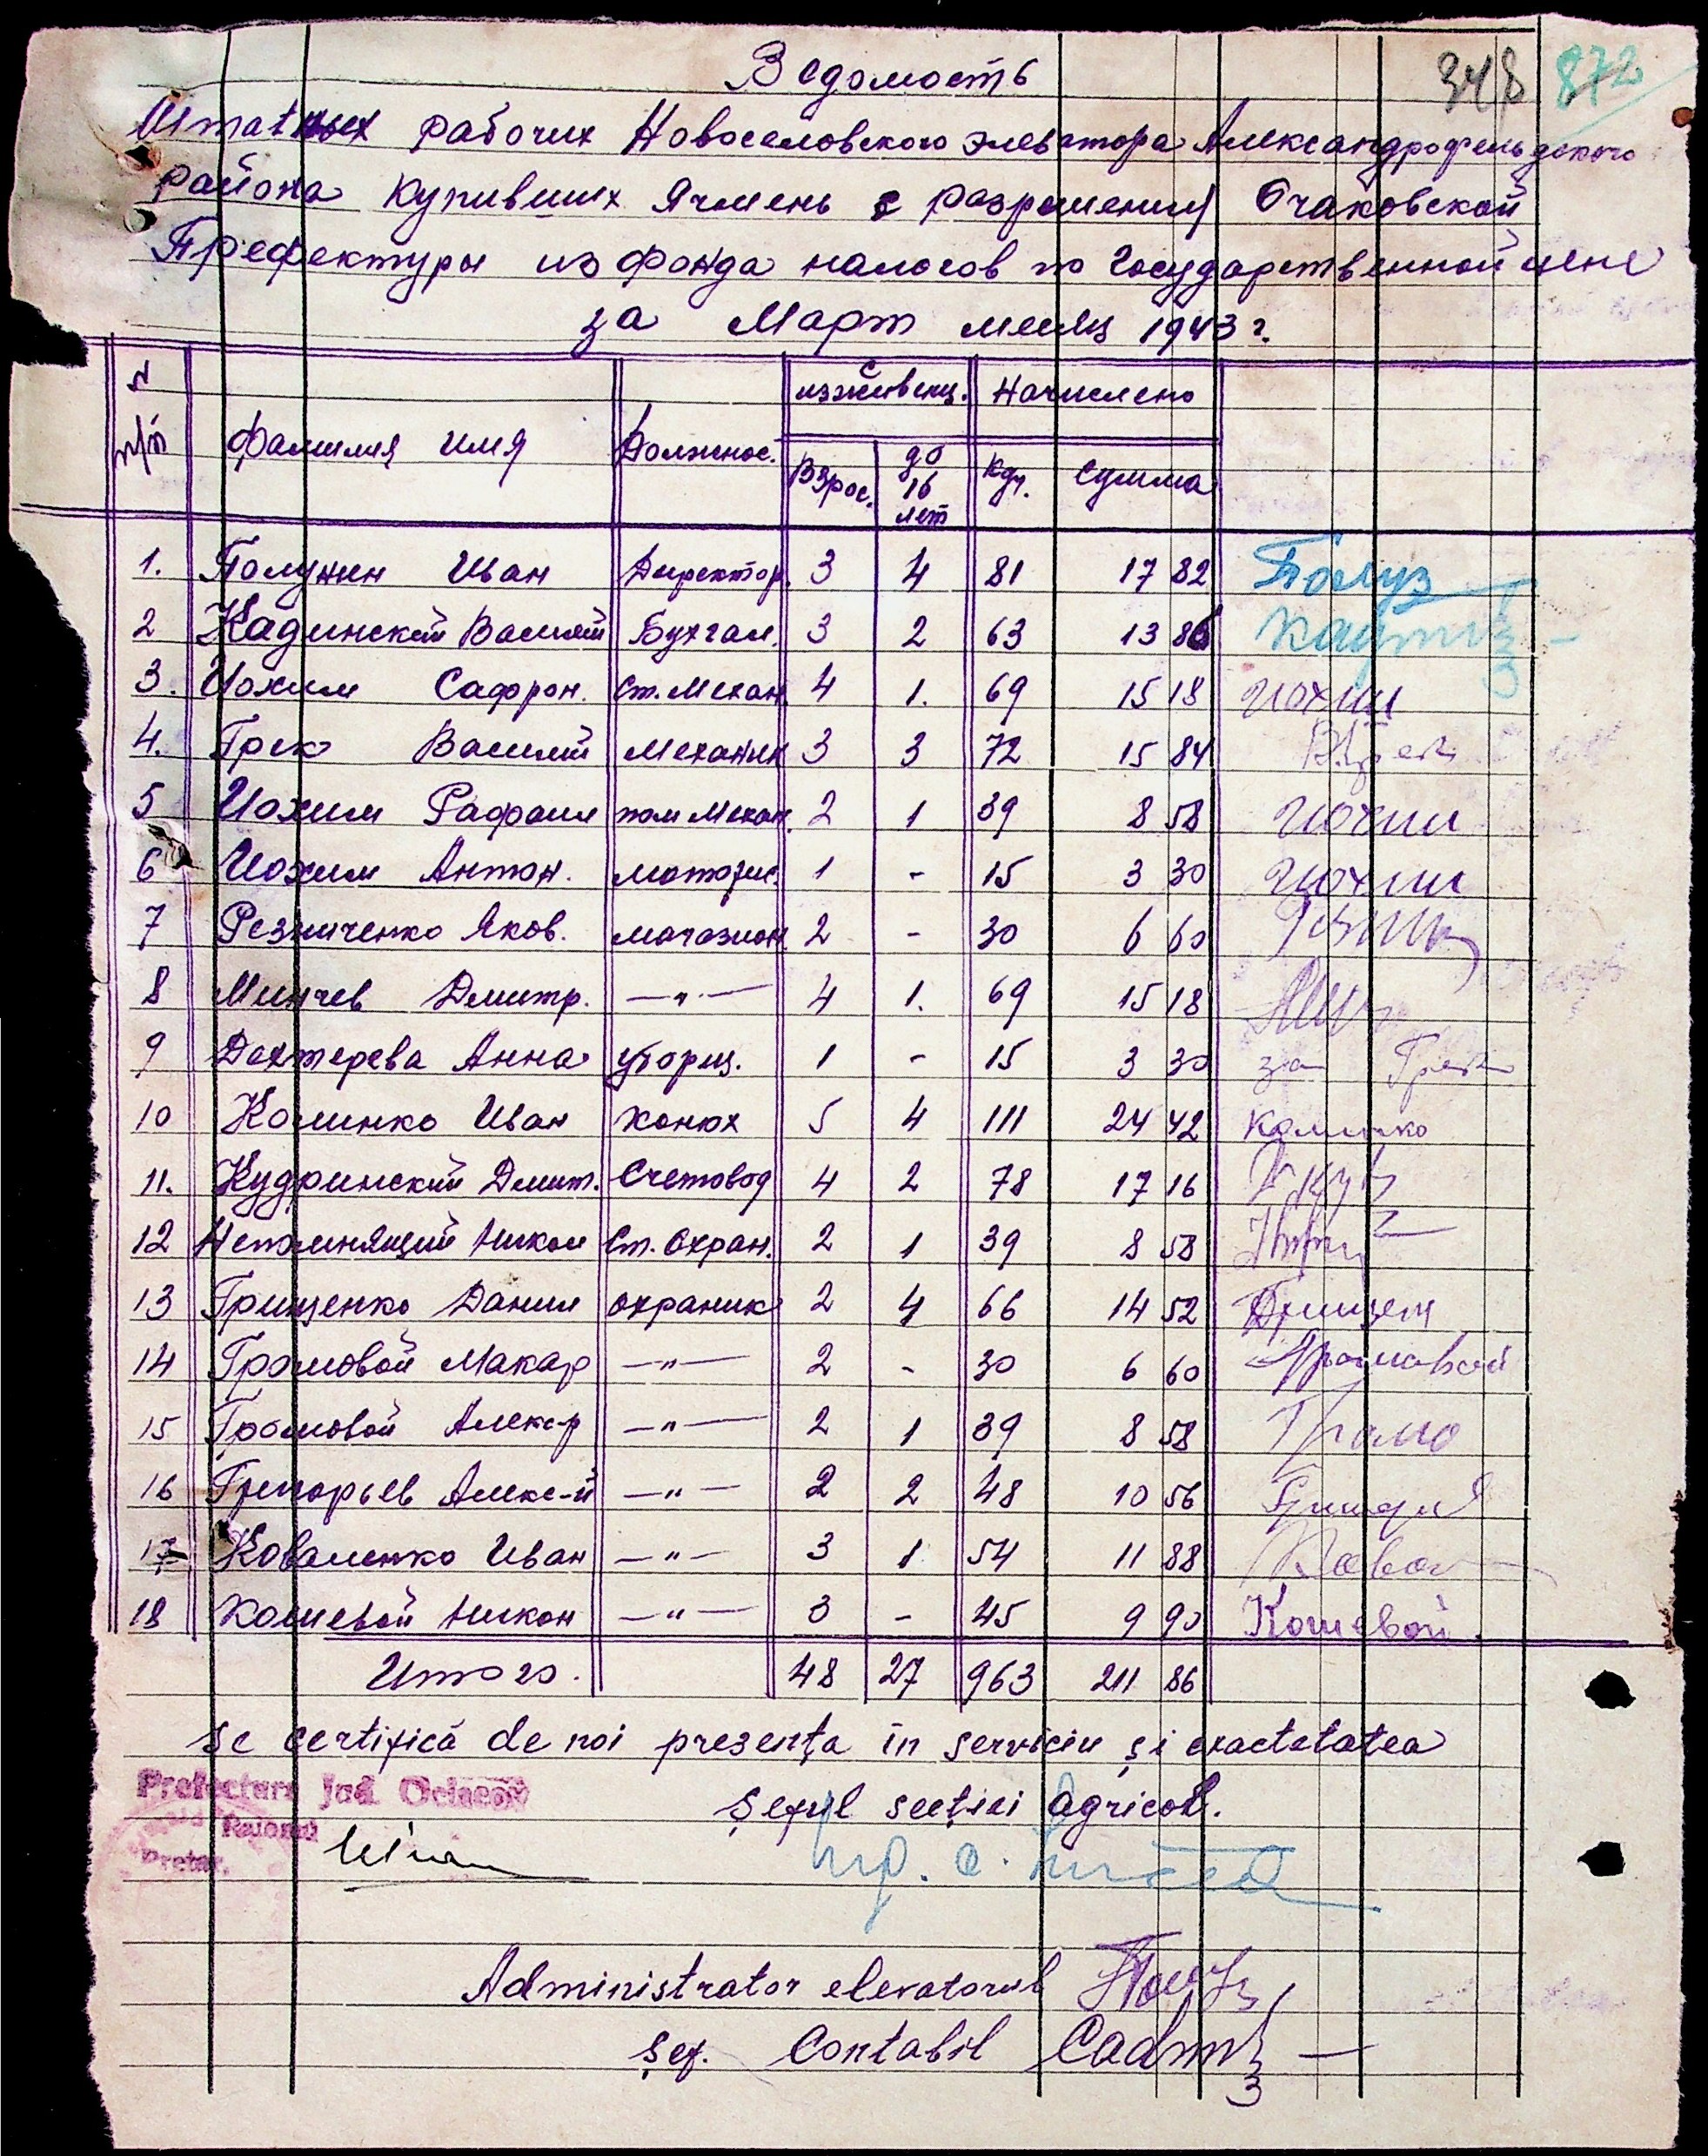 348 872
Ведомость
Штатных рабочих Новоселовского элеватора Александрофельдского
района купивших Ячмень с разрешения Очаковской
Префектуры из фонда налогов по Государственной цене
за Март месяц 1943 г.
N п/п Фамилия Имя Должнос. изживенц. Начислено
Взрос. до 16 лет Кгр. Сумма
1. Полузин Иван Директор. 3 4 81 17 82 Полуз
2 Кадинский Василий Бухгал. 3 2 63 13 86
3. Иохим Сафрон. Ст. Механ. 4 1. 69 15 18 Иохим
4. Грек Василий Механик 3 3 72 15 84 В Грек
5 Иохим Рафаил пом Механ. 2 1 39 8 58 Иохим
6 Иохим Антон. моторис. 1 - 15 3 30 Иохим
7 Резниченко Яков. магазион. 2 - 30 6 60
8 Минчев Дмитр. —"— 4 1. 69 15 18
9 Дехтерева Анна уборщ. 1 - 15 3 30 за Грек
10 Колинко Иван Конюх 5 4 111 24 42 Колинко
11. Кудринский Дмит. Счетовод 4 2 78 17 16
12 Непомнящий Никол Ст. Охран. 2 1 39 8 58
13 Грищенко Данил охраник 2 4 66 14 52 Грищен
14 Громовой Макар —"— 2 - 30 6 60 Громовой
15 Громовой Алек-р —"— 2 1 39 8 58 Громо
16 Григорьев Алекс-й —"— 2 2 48 10 56
17 Коваленко Иван —"— 3 1 54 11 88
18 Кошевой Никон —"— 3 - 45 9 90 Кошевой.
Итого. 48 27 963 211 86
se certifică de noi prezenţa în serviciu şi exactitatea
Prefectura jud. Oceacov
Şeful secţiei agricol.
Raionul
Pretor.
Administrator elevatorul
Şef. Contabil